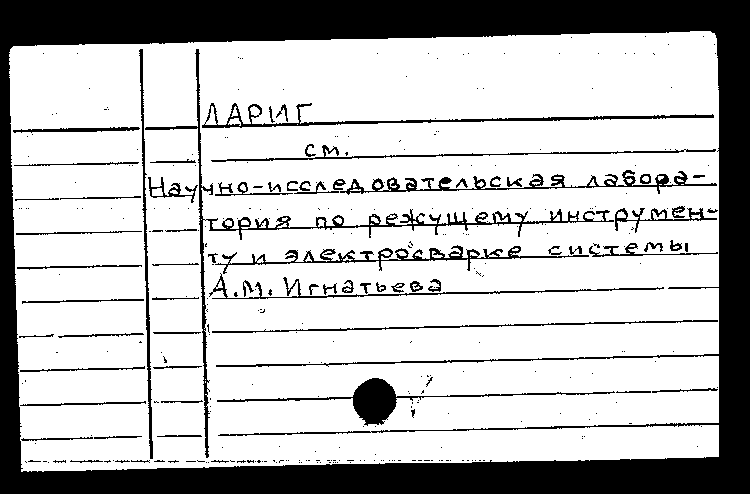 ЛАРИГ
см.
Научно-исследовательская лабора-
тория по режущему инструмен-
ту и электросварке системы
А.М. Игнатьева